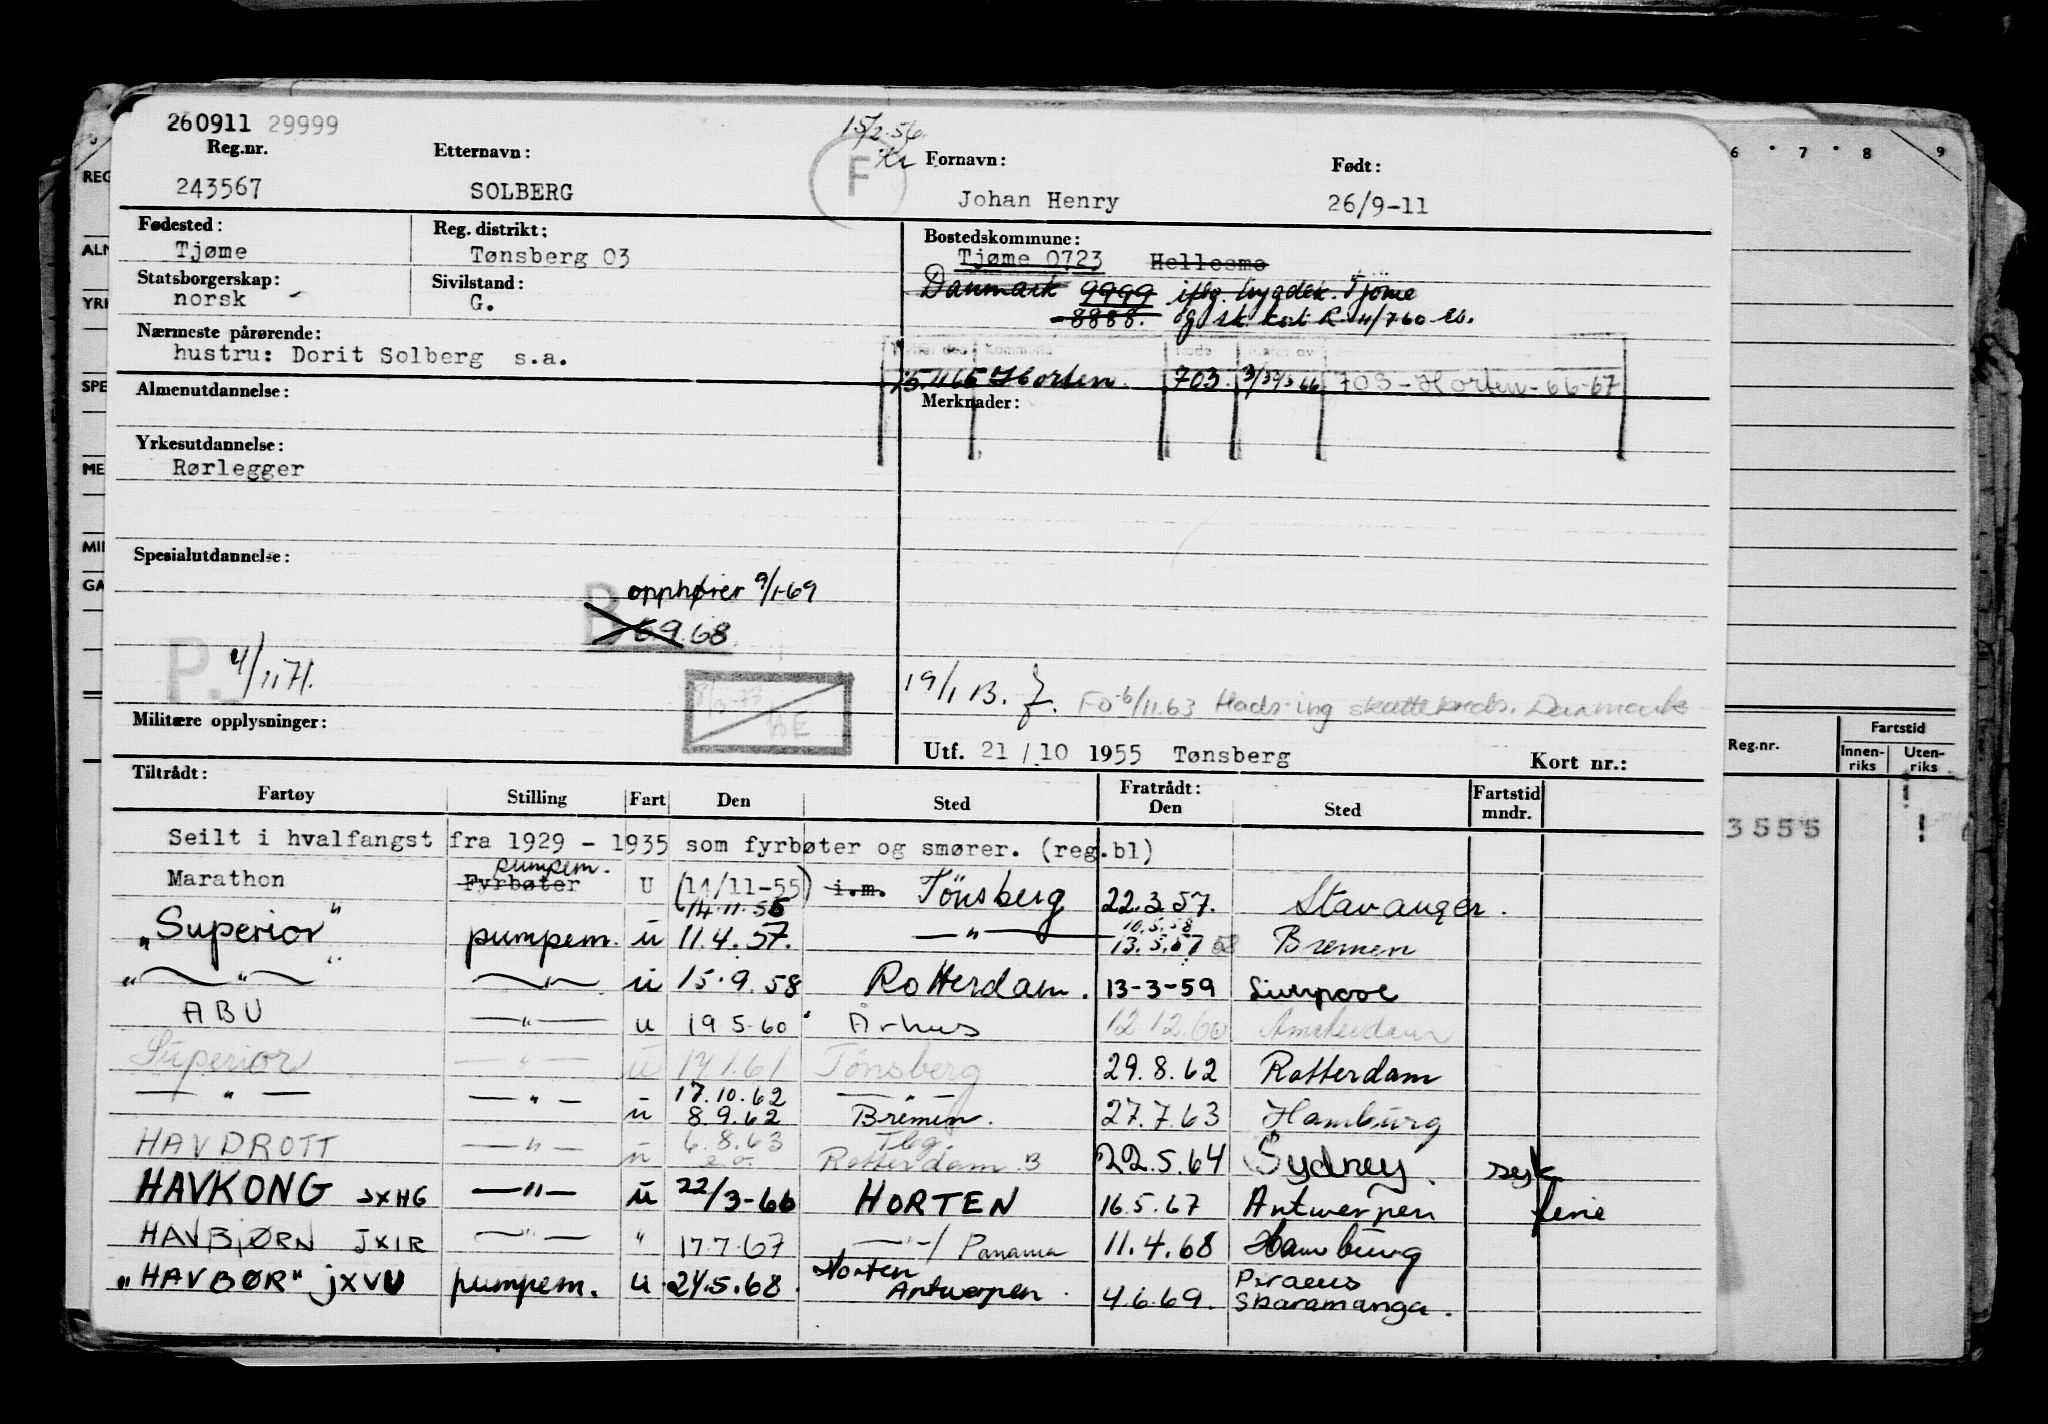 260911 29999
15/2-56.
Reg.nr. Etternavn: F Fornavn: Født:
243567 SOLBERG Johan Henry 26/9-11
Fødested: Reg. distrikt: Bostedskommune:
Tjøme Tønsberg 03 Tjøme 0723 Hellesmo
Statsborgerskap: Sivilstand: Danmark 9999 iflg. bygdek. Tjöme
norsk G. 8888. og sk. kort R. 4/7 60
Nærmeste pårørende:
hustru: Dorit Solberg s.a.
Horten 703 703-Horten-6 6-67
Almenutdannelse: Merknader:
Yrkesutdannelse:
Rørlegger
Spesialutdannelse:
B opphører 9/1-69
6.9.68
P. 4/11 71.
19/1 B. FO 6/11.63 Danmark
Militære opplysninger:
Utf. 21/10 1955 Tønsberg Kort nr.:
Tiltrådt: Fratrådt:
Fartøy Stilling Fart Den Sted Den Sted Fartstid mndr.
Seilt i hvalfangst fra 1929 - 1935 som fyrbøter og smører. (reg.bl)
Marathon Fyrbøter pumpem. U (14/11-55) 14.11.55 i.m. Tönsberg 22.3.57. Stavanger.
"Superior" pumpem. u 11.4.57. — " — 10.5.58 13.5.57 58 Bremen
" — " — — " — u 15.9.58 Rotterdam. 13-3-59 Liverpool
ABU — " — u 19 5-60 Århus 12 12.60 Amsterdam
Superior — " — u 17 1.61 Tönsberg 29.8.62 Rotterdam
— " — — " — u 17.10.62 8.9.62 — " — Bremen. 27.7.63 Hamburg
HAVDROTT — " — u 6.8.63 e.o. Tbg. Rotterdam B 22.5.64 Sydney. syk
HAVKONG JXHG — " — u 22/3-66 HORTEN 16.5.67 Antwerpen ferie
HAVBJØRN JXIR — " — " 17.7.67 — " — / Panama 11.4.68 Hamburg
"HAVBØR" jXVU pumpem. u 24.5.68. Horten Antwerpen. 4.6.69. Piraeus Skaramanga.
6 7 8 9
REG
ALM
YRK
SPE
ME
MIL
GA
Reg.nr. Fartstid
Innenriks Utenriks
3555